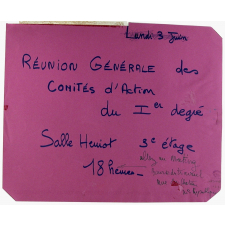 Lundi 3 Juin
RÉUNION GÉNÉRALE des
COMITÉS d'Action
du Ier degré
Salle Heniot 3e étage
18 heures_